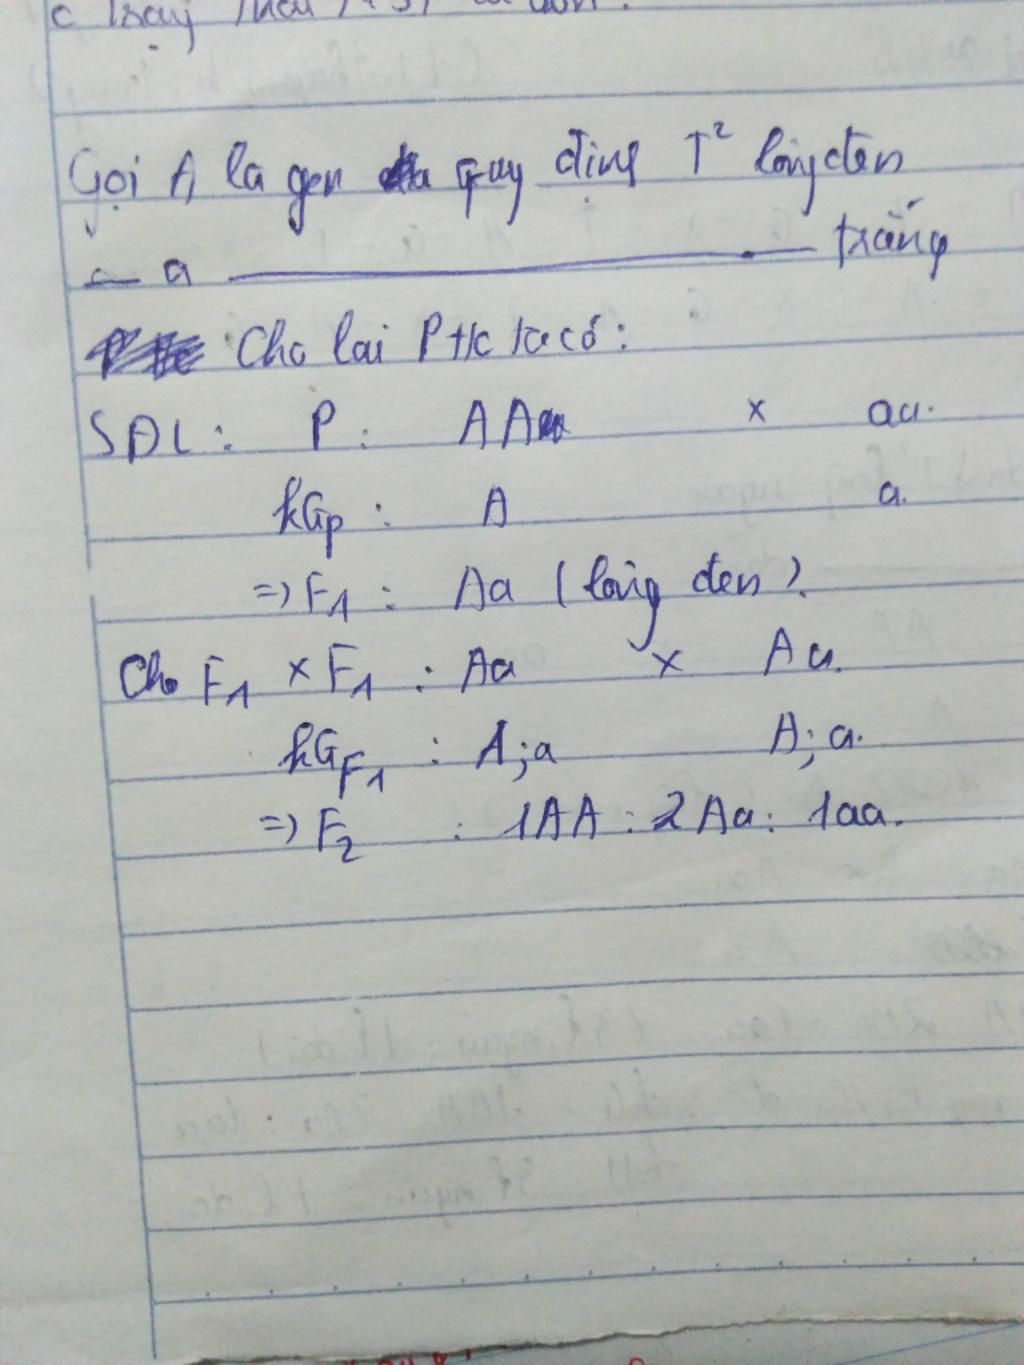 Gọi A là gen quy định T² lông đen
— a ——— trắng
Cho lai P t/c ta có:
SĐL: P: AA x aa.
kGp: A a.
=> F1: Aa (lông đen).
Cho F1 x F1: Aa x Aa.
kGF1: A;a A;a.
=> F2: 1AA: 2Aa: 1aa.